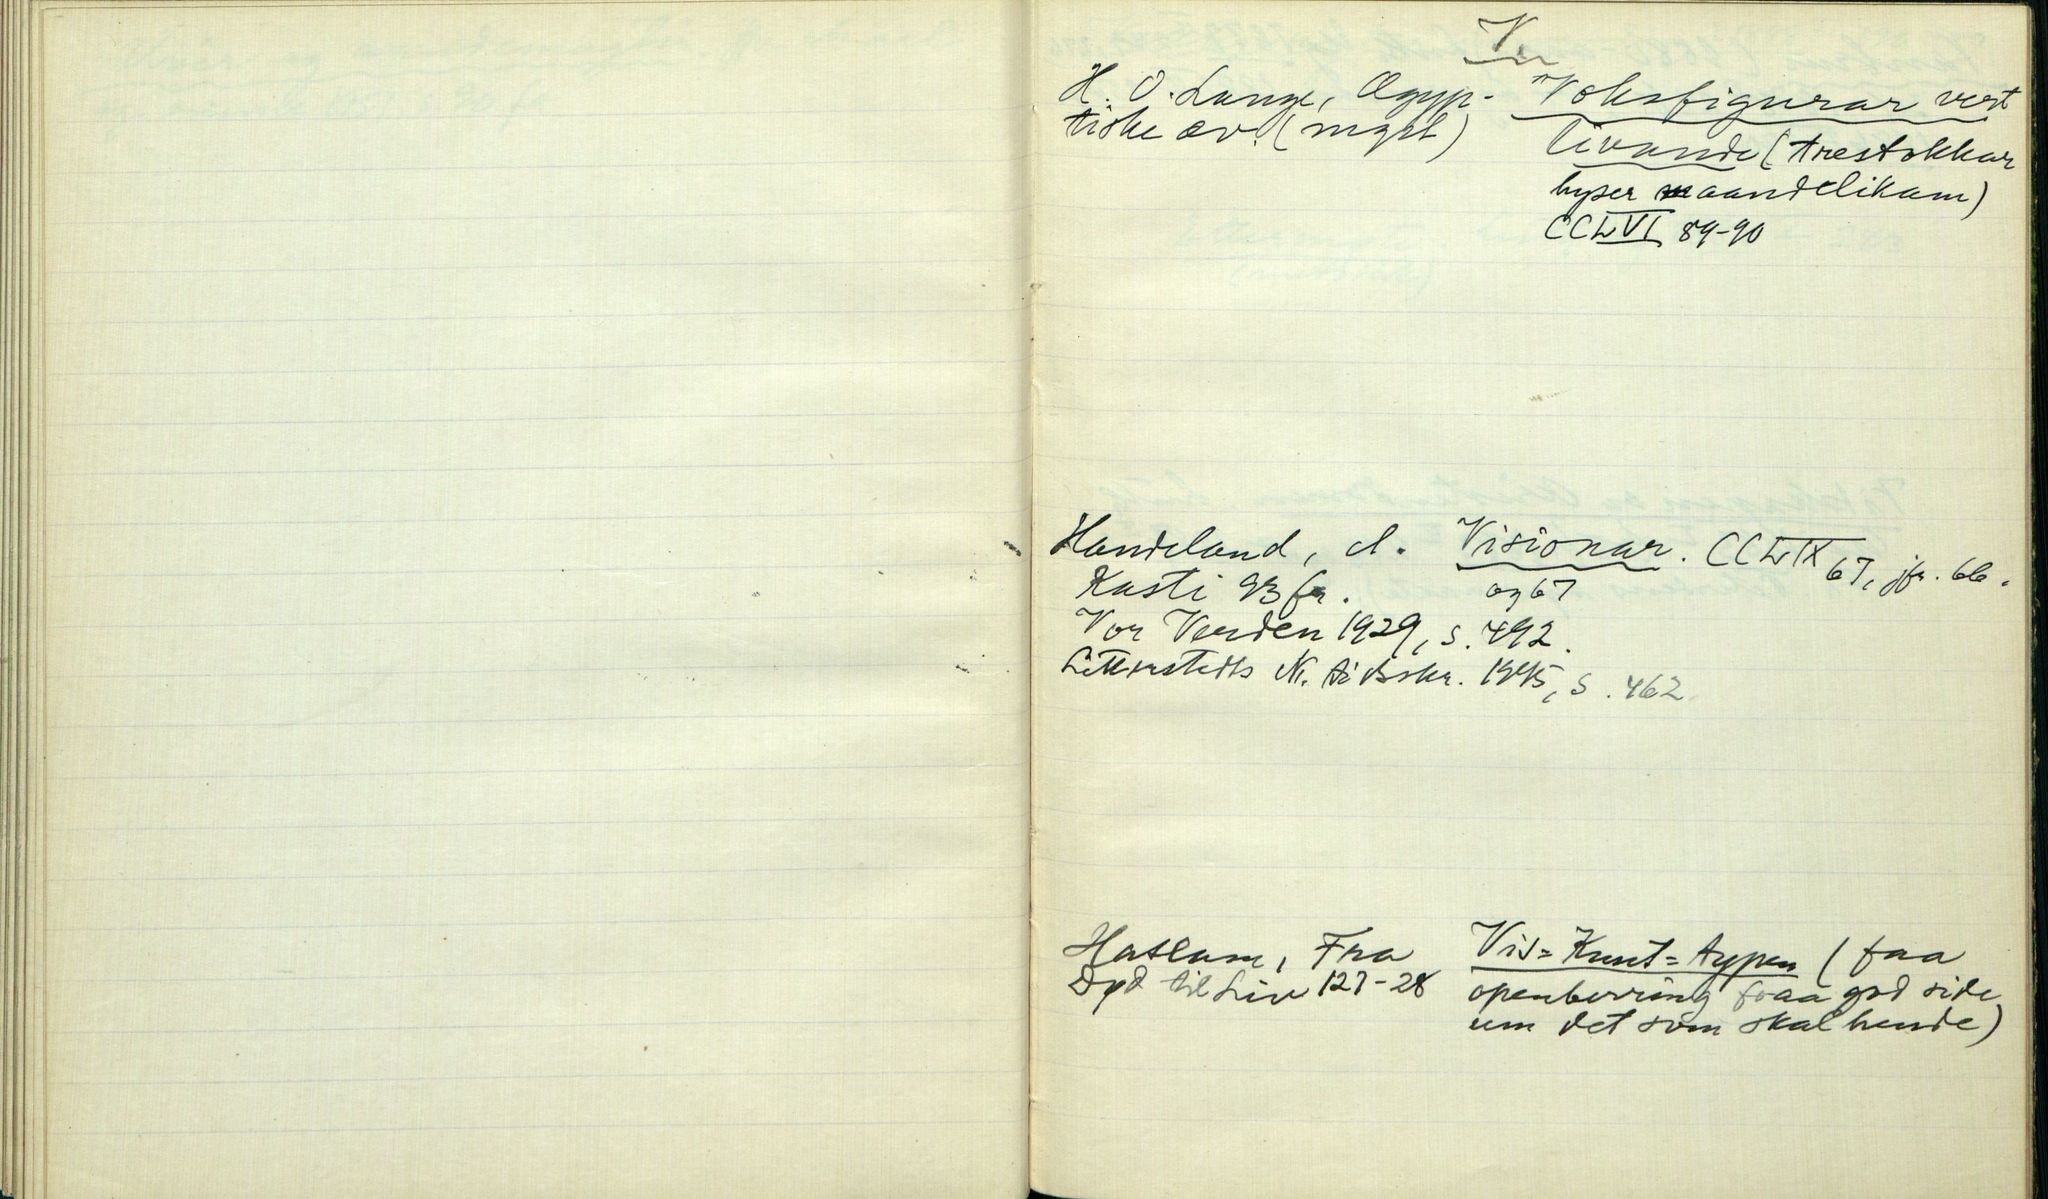 V.
H. O. Lange, Ægyp-
tiske æv. (mgst)
Voksfigurar vert
livande (trestokkar
hyser maandelikam)
CCLVI 89-90
Handeland, d. Visionar. CCLIX 67, jfr. 66.
Kasti 93 fr. og 67
Vor Verden 1929, s. 492.
Letterstedts N. tidsskr. 1895, s. 462
Haslam, Fra
Død til Liv 127-28
Vis-Knut-typen (faa
openberring fraa god side
um det som skal hende)